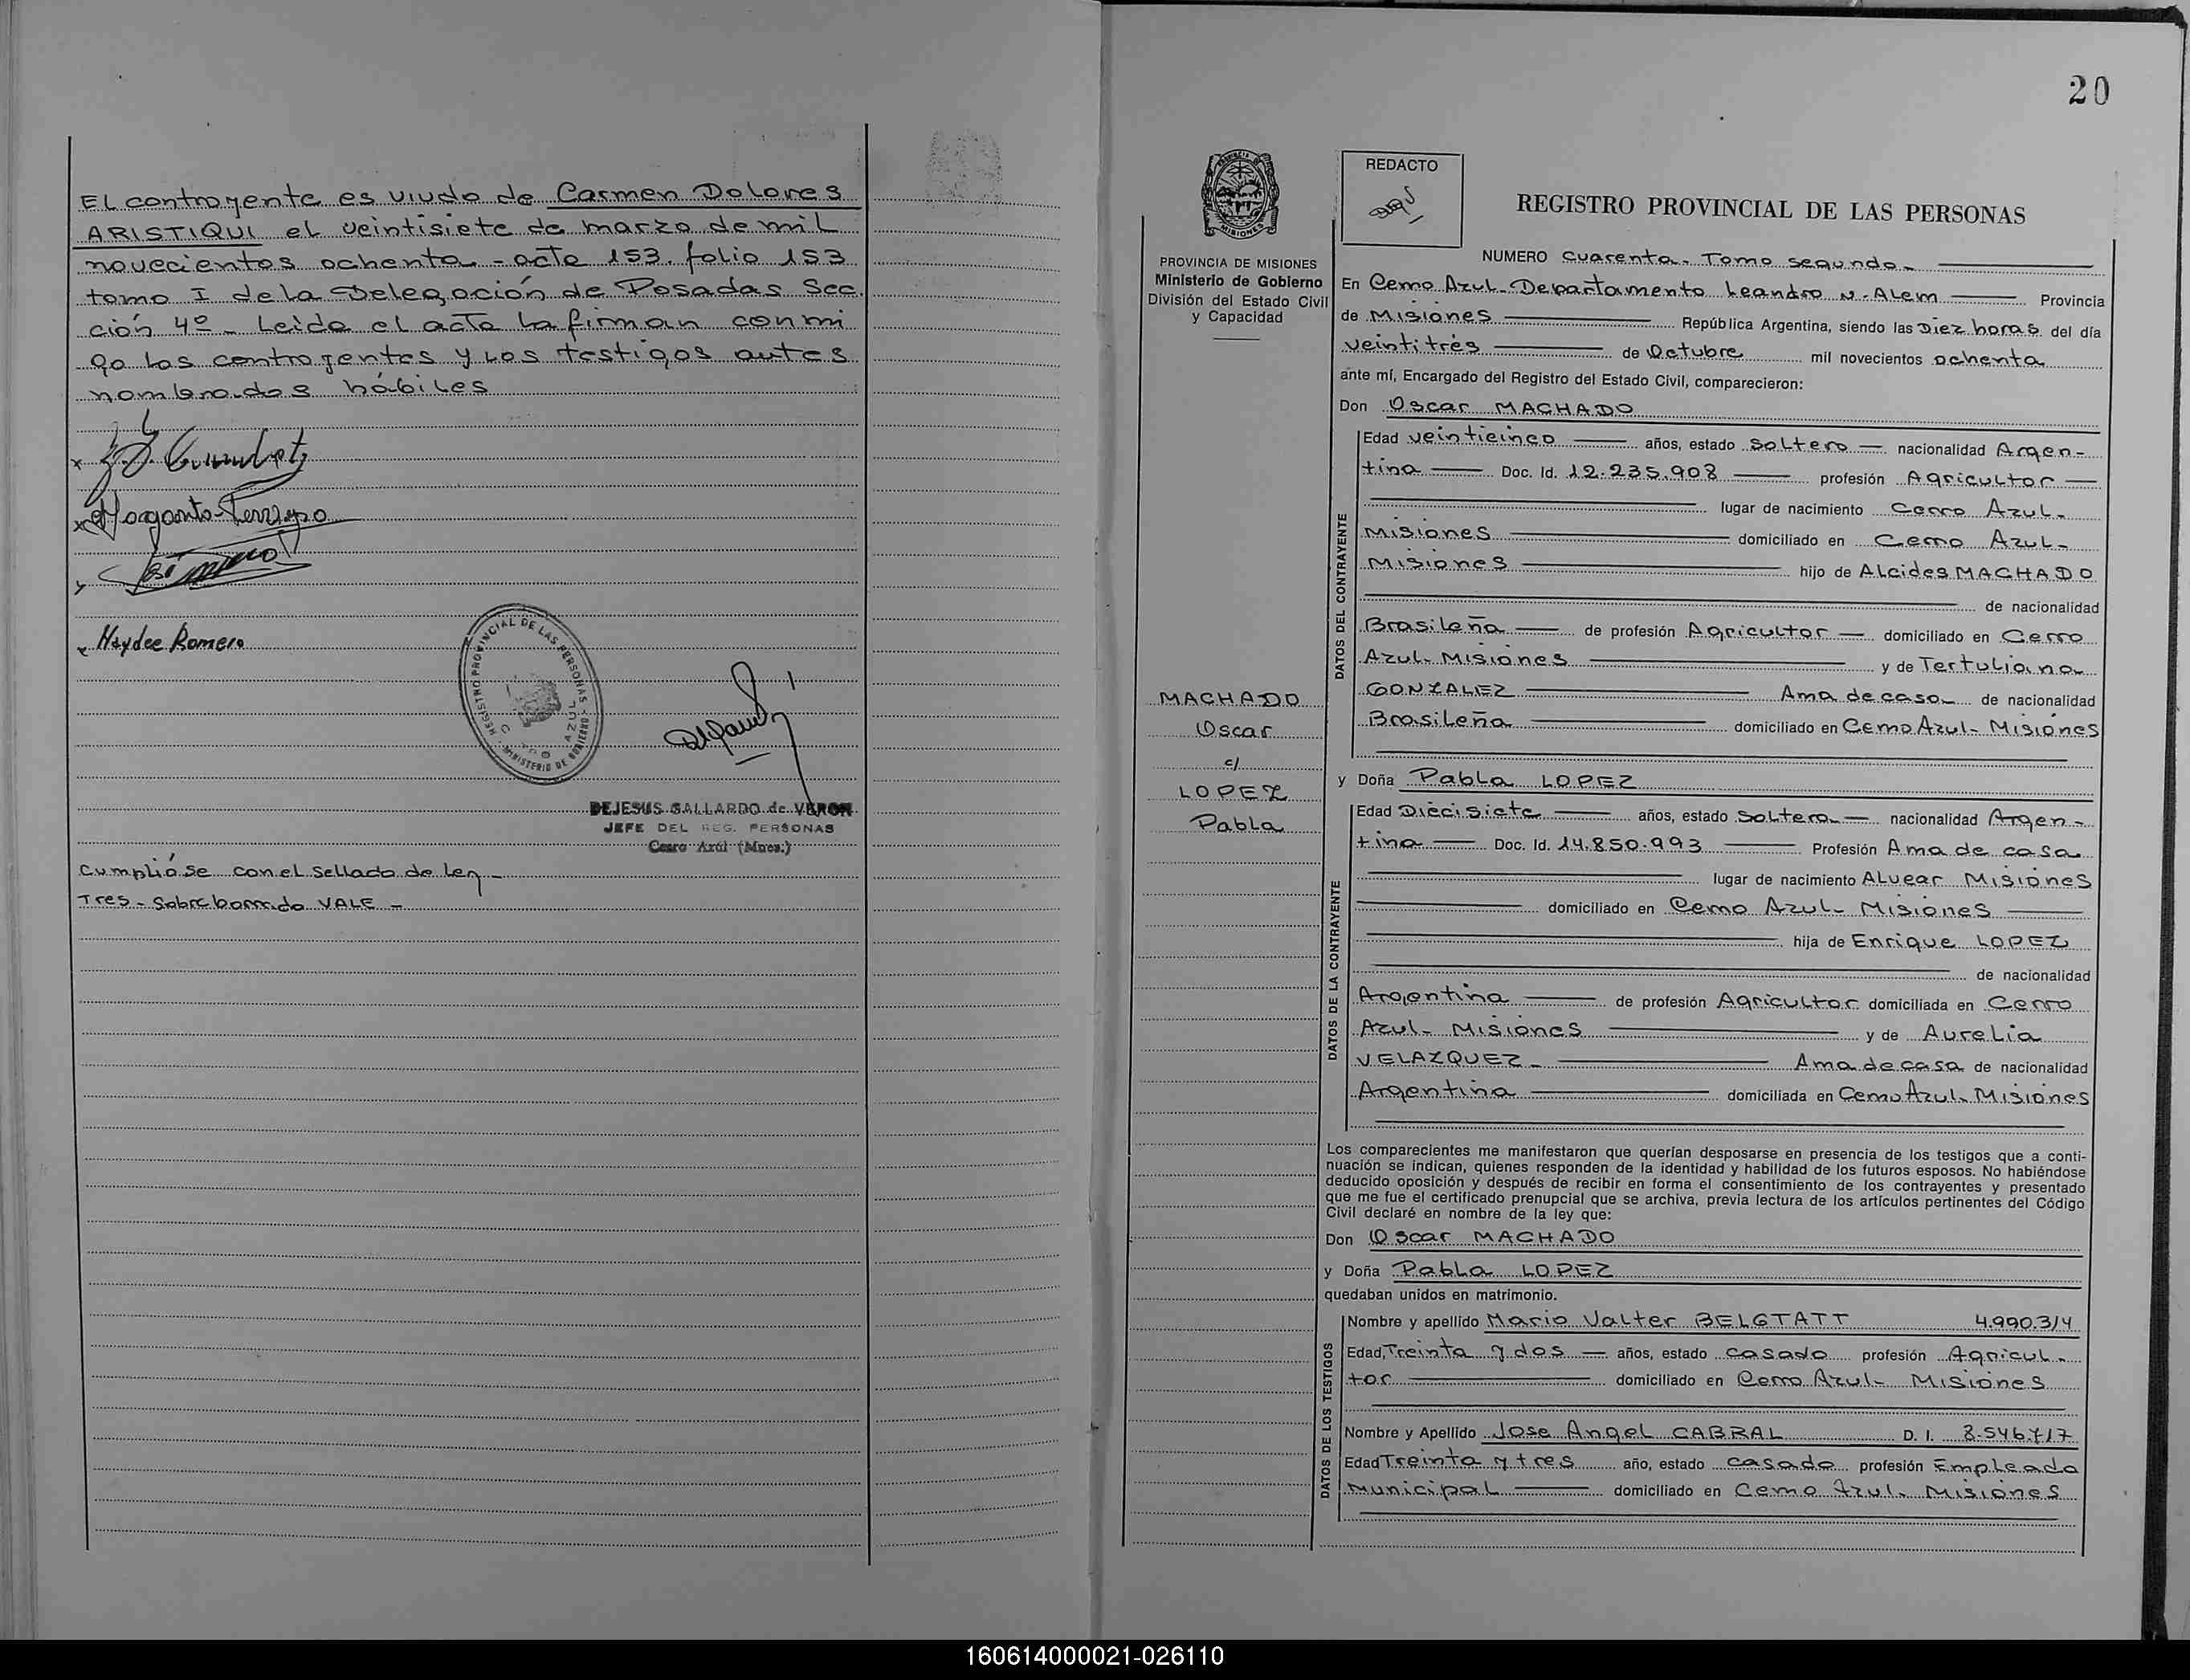 El contrayente es viudo de Carmen Dolores
ARISTIQUI el veintisiete de marzo de mil
novecientos ochenta - acta 153. folio 153
tomo I de la Delegación de Posadas Sec
ción 4º - Leida el acta la firman conmi
go los contrayentes y los testigos antes
nombrados hábiles
x
x Margarita
x
x Haydee Romero
REGISTRO PROVINCIAL DE LAS PERSONAS - MINISTERIO DE GOBIERNO
AZUL
DEJESUS GALLARDO de VERON
JEFE DEL REG. PERSONAS
Cerro Azúl (Mnes.)
Cumplióse con el sellado de ley -
Tres - Sobreborrado VALE -
20
MISIONES
PROVINCIA DE MISIONES
Ministerio de Gobierno
División del Estado Civil
y Capacidad
MACHADO
Oscar
c/
LOPEZ
Pabla
REDACTO
REGISTRO PROVINCIAL DE LAS PERSONAS
NUMERO Cuarenta - Tomo segundo -
En Cerro Azul - Departamento Leandro N. Alem Provincia
de Misiones República Argentina, siendo las Diez horas del día
veintitrés de Octubre mil novecientos ochenta
ante mí, Encargado del Registro del Estado Civil, comparecieron:
Don Oscar MACHADO
DATOS DEL CONTRAYENTE
Edad veinticinco años, estado soltero nacionalidad Argen-
tina Doc. Id. 12.235.908 profesión Agricultor
lugar de nacimiento Cerro Azul -
Misiones domiciliado en Cerro Azul -
Misiones hijo de Alcides MACHADO
de nacionalidad
Brasileña de profesión Agricultor domiciliado en Cerro
Azul - Misiones y de Tertuliana
GONZALEZ Ama de casa de nacionalidad
Brasileña domiciliado en Cerro Azul - Misiones
y Doña Pabla LOPEZ
DATOS DE LA CONTRAYENTE
Edad Diecisiete años, estado soltera nacionalidad Argen -
tina Doc. Id. 14.850.993 Profesión Ama de casa
lugar de nacimiento Alvear Misiones
domiciliado en Cerro Azul - Misiones
hija de Enrique LOPEZ
de nacionalidad
Argentina de profesión Agricultor domiciliada en Cerro
Azul - Misiones y de Aurelia
VELAZQUEZ - Ama de casa de nacionalidad
Argentina domiciliada en Cerro Azul - Misiones
Los comparecientes me manifestaron que querían desposarse en presencia de los testigos que a conti-
nuación se indican, quienes responden de la identidad y habilidad de los futuros esposos. No habiéndose
deducido oposición y después de recibir en forma el consentimiento de los contrayentes y presentado
que me fue el certificado prenupcial que se archiva, previa lectura de los artículos pertinentes del Código
Civil declaré en nombre de la ley que:
Don Oscar MACHADO
y Doña Pabla LOPEZ
quedaban unidos en matrimonio.
DATOS DE LOS TESTIGOS
Nombre y apellido Mario Valter BELGTATT 4.990.314
Edad, Treinta y dos años, estado casado profesión Agricul -
tor domiciliado en Cerro Azul - Misiones
Nombre y Apellido Jose Angel CABRAL D. I. 8.546.717
Edad Treinta y tres año, estado casado profesión Empleado
Municipal domiciliado en Cerro Azul - Misiones
160614000021-026110